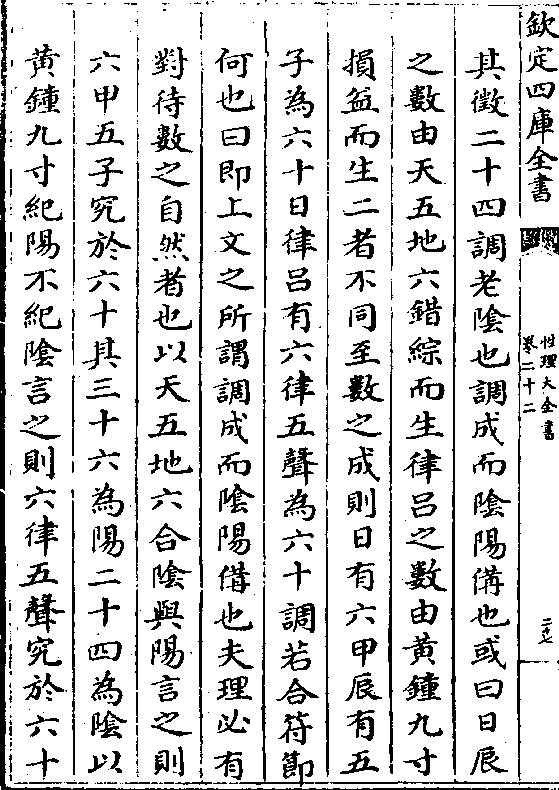 欽定四庫全書
性理大全書
卷二十二
其徵二十四調老陰也調成而陰陽備也或曰日辰
之數由天五地六錯綜而生律呂之數由黃鐘九寸
損益而生二者不同至數之成則日有六甲辰有五
子為六十日律呂有六律五聲為六十調若合符節
何也曰即上文之所謂調成而陰陽備也夫理必有
對待數之自然者也以天五地六合陰與陽言之則
六甲五子究於六十其三十六為陽二十四為陰以
黃鐘九寸紀陽不紀陰言之則六律五聲究於六十